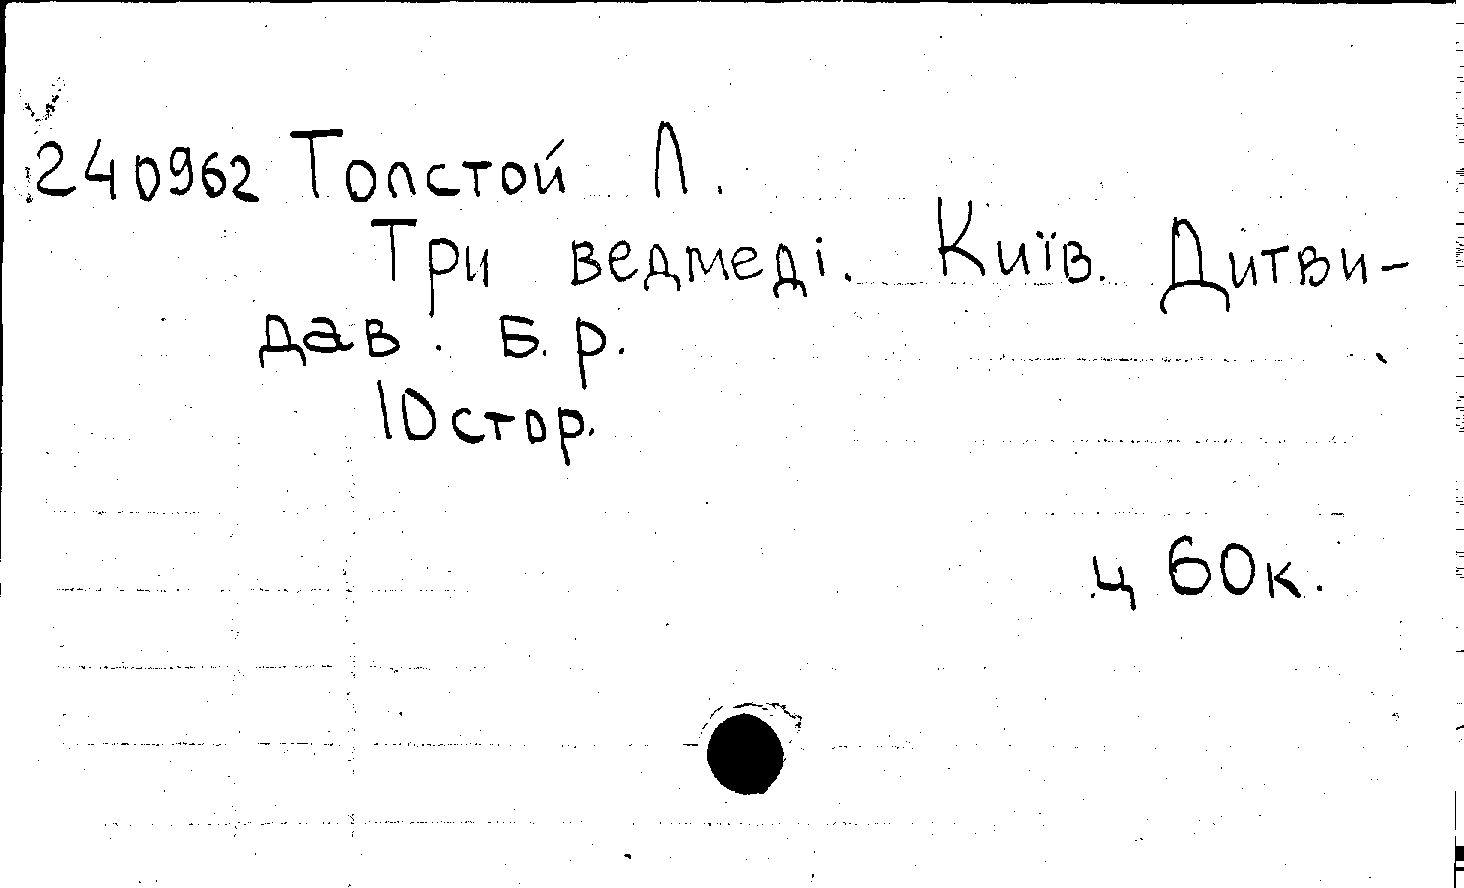 240962 Толстой Л.
Три ведмеді. Київ. Дитви-
дав. Б. р.
10 стор.
ц 60к.